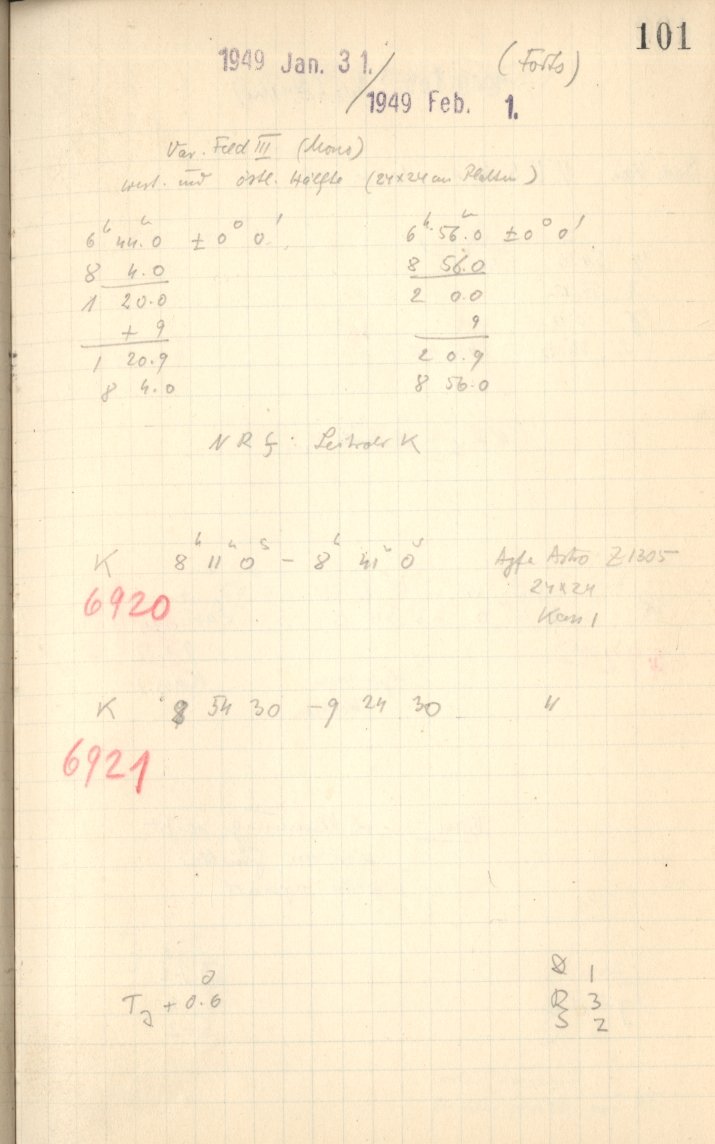 101
1949 Jan. 31. / (Forts)
1949 Feb. 1.
Var. Feld III (Mono)
westl. und östl. Hälfte (24x24 cm Platten)
6ʰ 44ᵐ.0 ± 0° 0'
8 4.0
1 20.0
+ 9
1 20.9
8 4.0
6ʰ 56ᵐ.0 ± 0° 0'
8 56.0
2 0.0
9
2 0.9
8 56.0
N R ξ Leitrohr K
K 8ʰ 11ᵐ 0ˢ - 8ʰ 41ᵐ 0ˢ Agfa Astro Z1305
6920 24x24
Kass 1
K 8 54 30 - 9 24 30 "
6921
T_J + 0.°6
Q 1
R 3
S 2